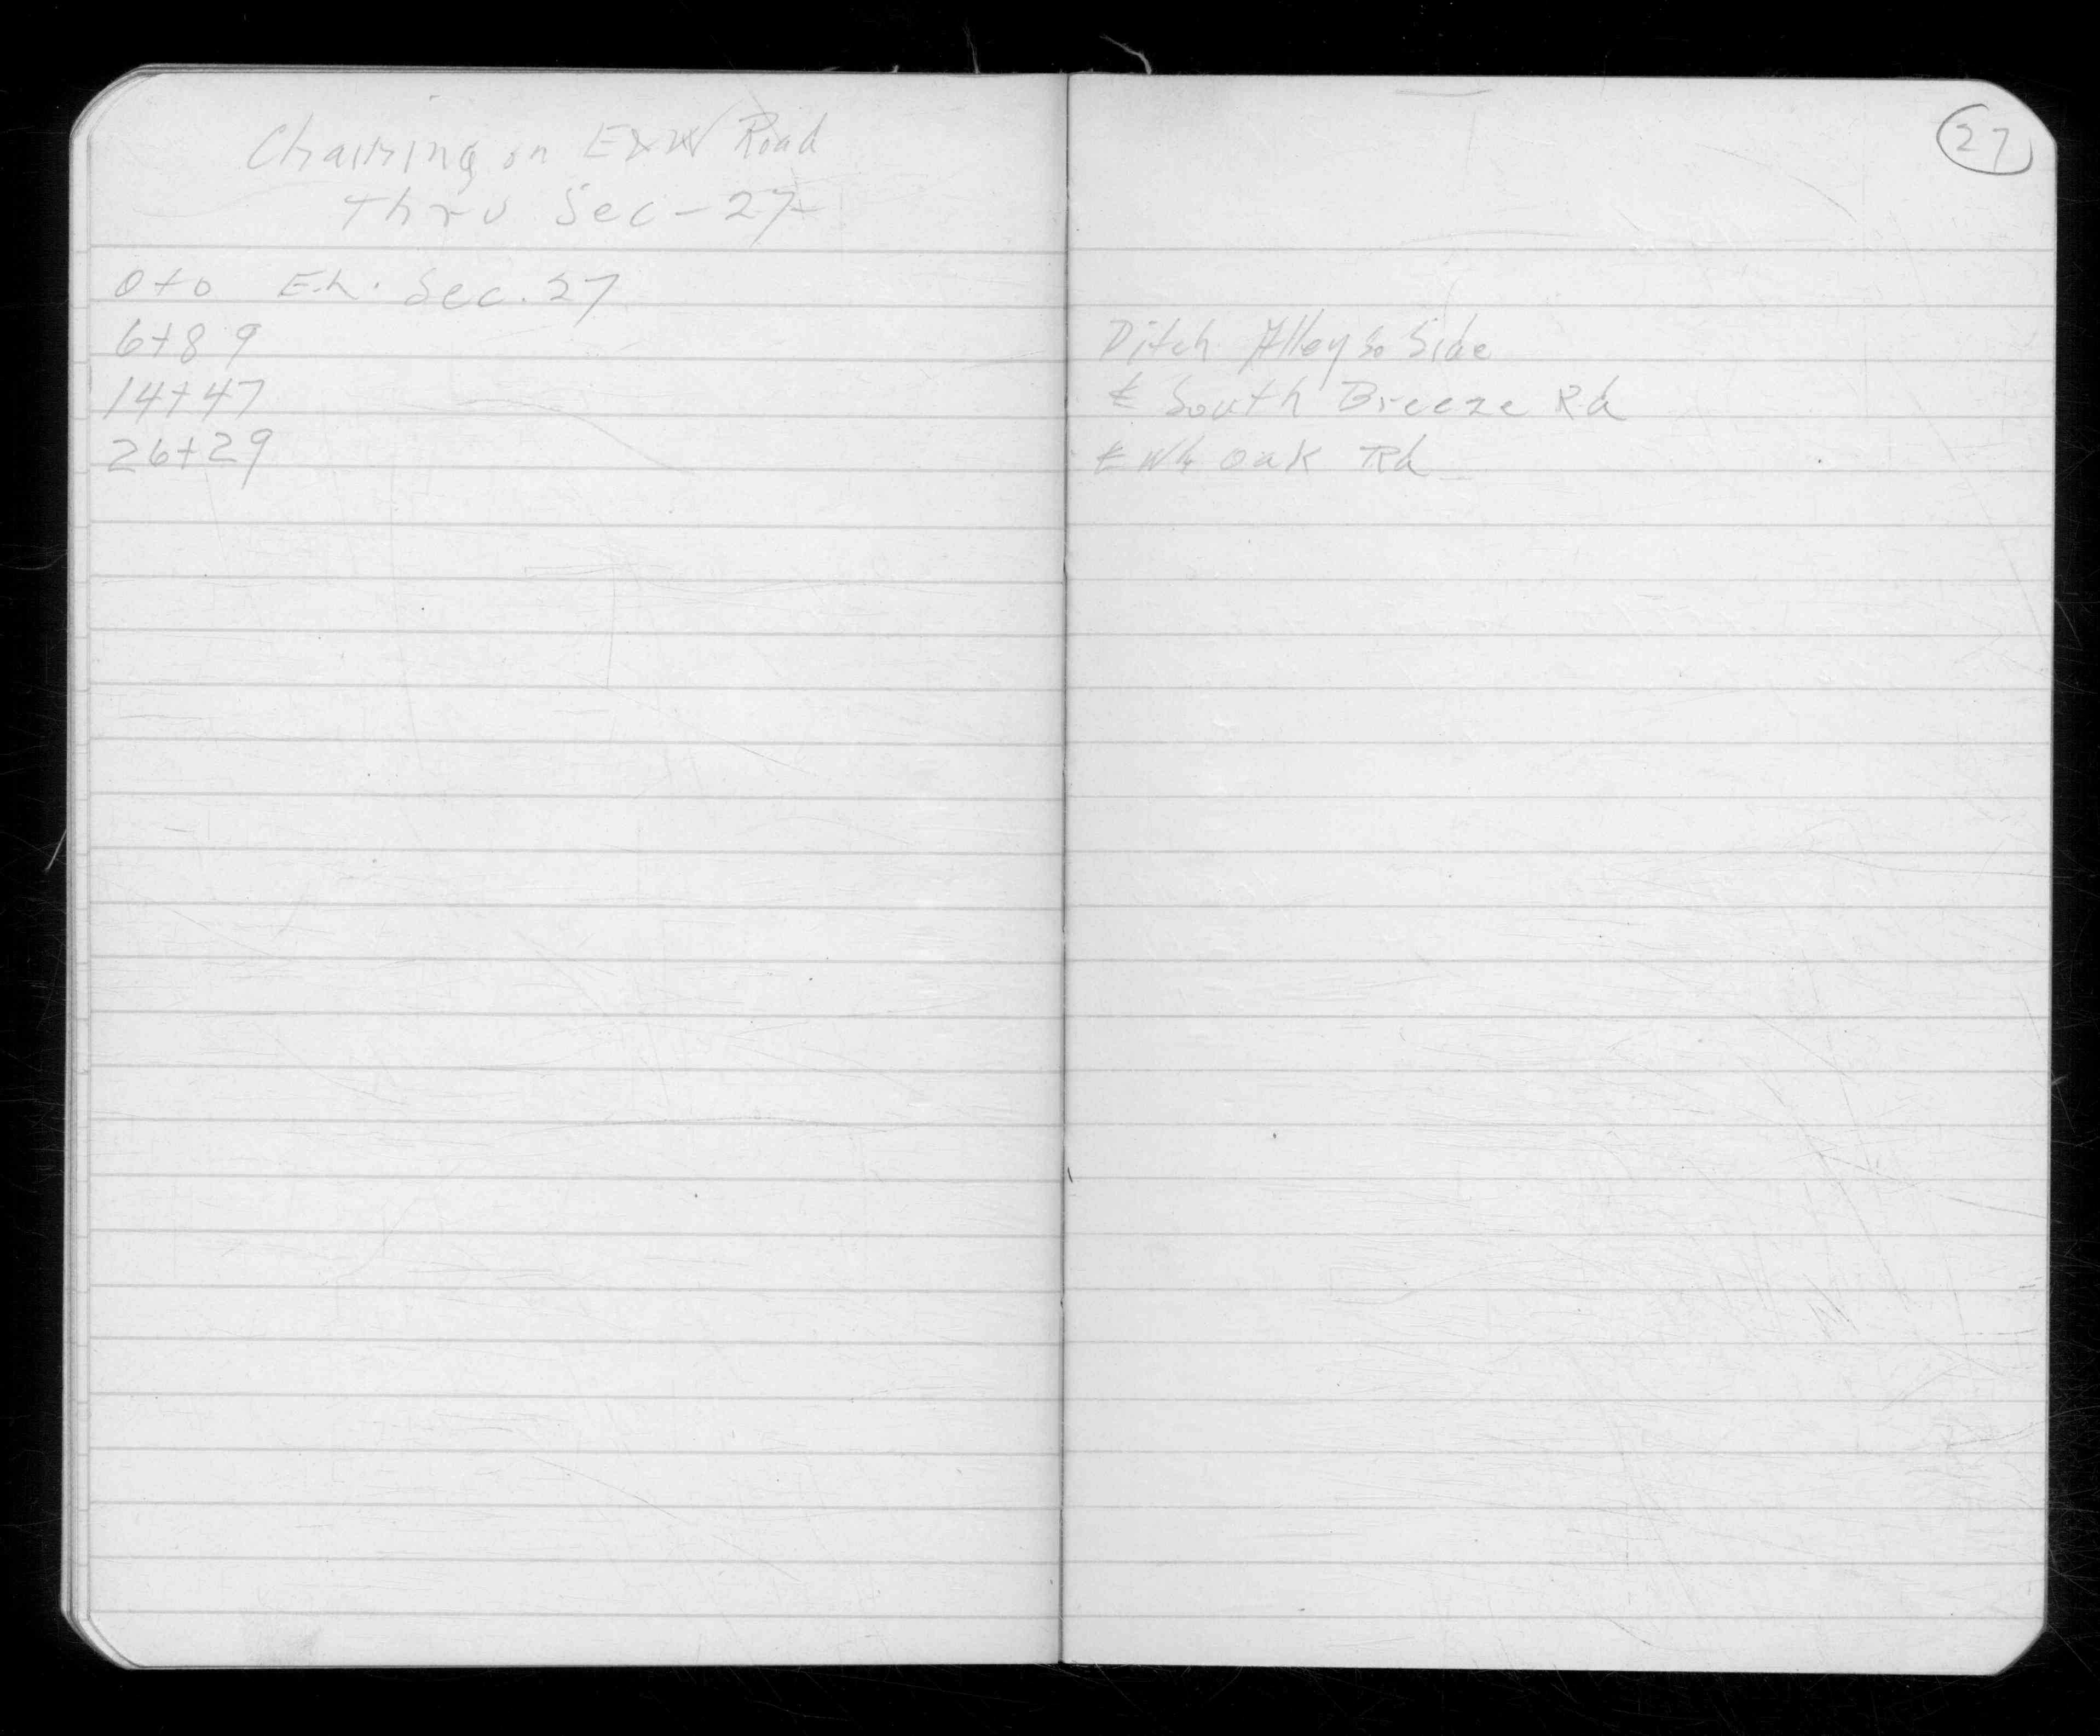 Chaining on E & W Road
Thru Sec - 27
27
0+0 E.L. Sec. 27
6+89 Ditch Alley So Side
14+47 ℄ South Breeze Rd
26+29 ℄ Wh Oak Rd